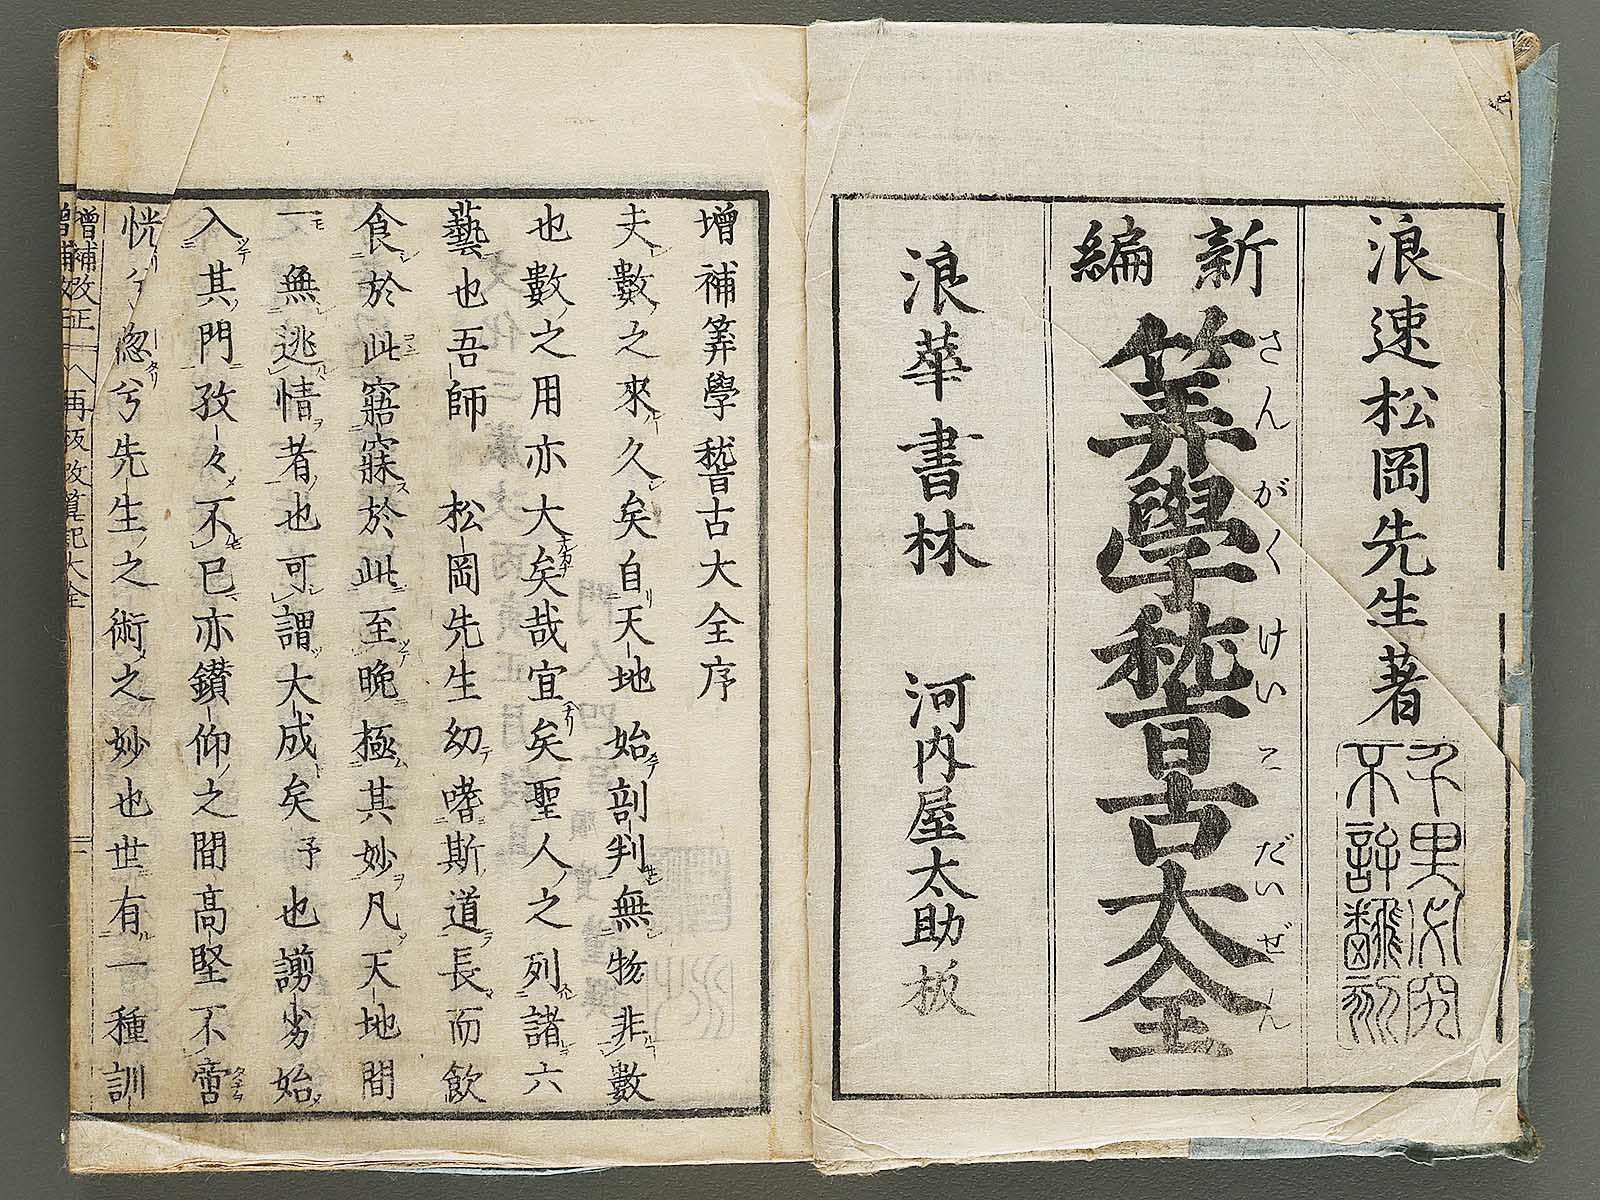 浪速松岡先生著
千里必究
不許翻刻
新編
筭學稽古大全
さんがくけいこだいぜん
浪華書林 河内屋太助板
增補筭學稽古大全序
夫數之來久矣自天地始剖判無物非數
也數之用亦大矣哉宜矣聖人之列諸六
藝也吾師 松岡先生幼嗜斯道長而飲
食於此寤寐於此至晩極其妙凡天地間
一無逃情者也可謂大成矣予也謭劣始
入其門孜々不已亦鑚仰之間高堅不啻
恍兮惚兮先生之術之妙也世有一種訓
增補改正 再板改算記大全